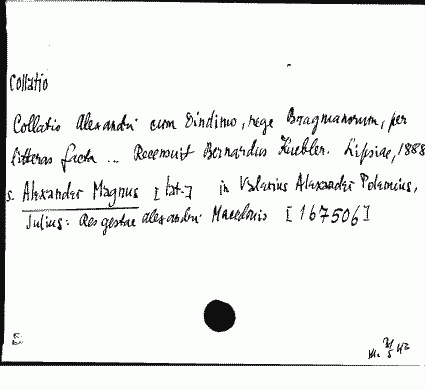 Collatio
Collatio Alexandri cum Dindimo, rege Bragmanorum, per
litteras facta ... Recensuit Bernardus Kuebler. Lipsiae, 1888
s. Alexander Magnus [lat.] in Valerius Alexander Polemius,
Julius: Res gestae Alexandri Macedonis [167506]